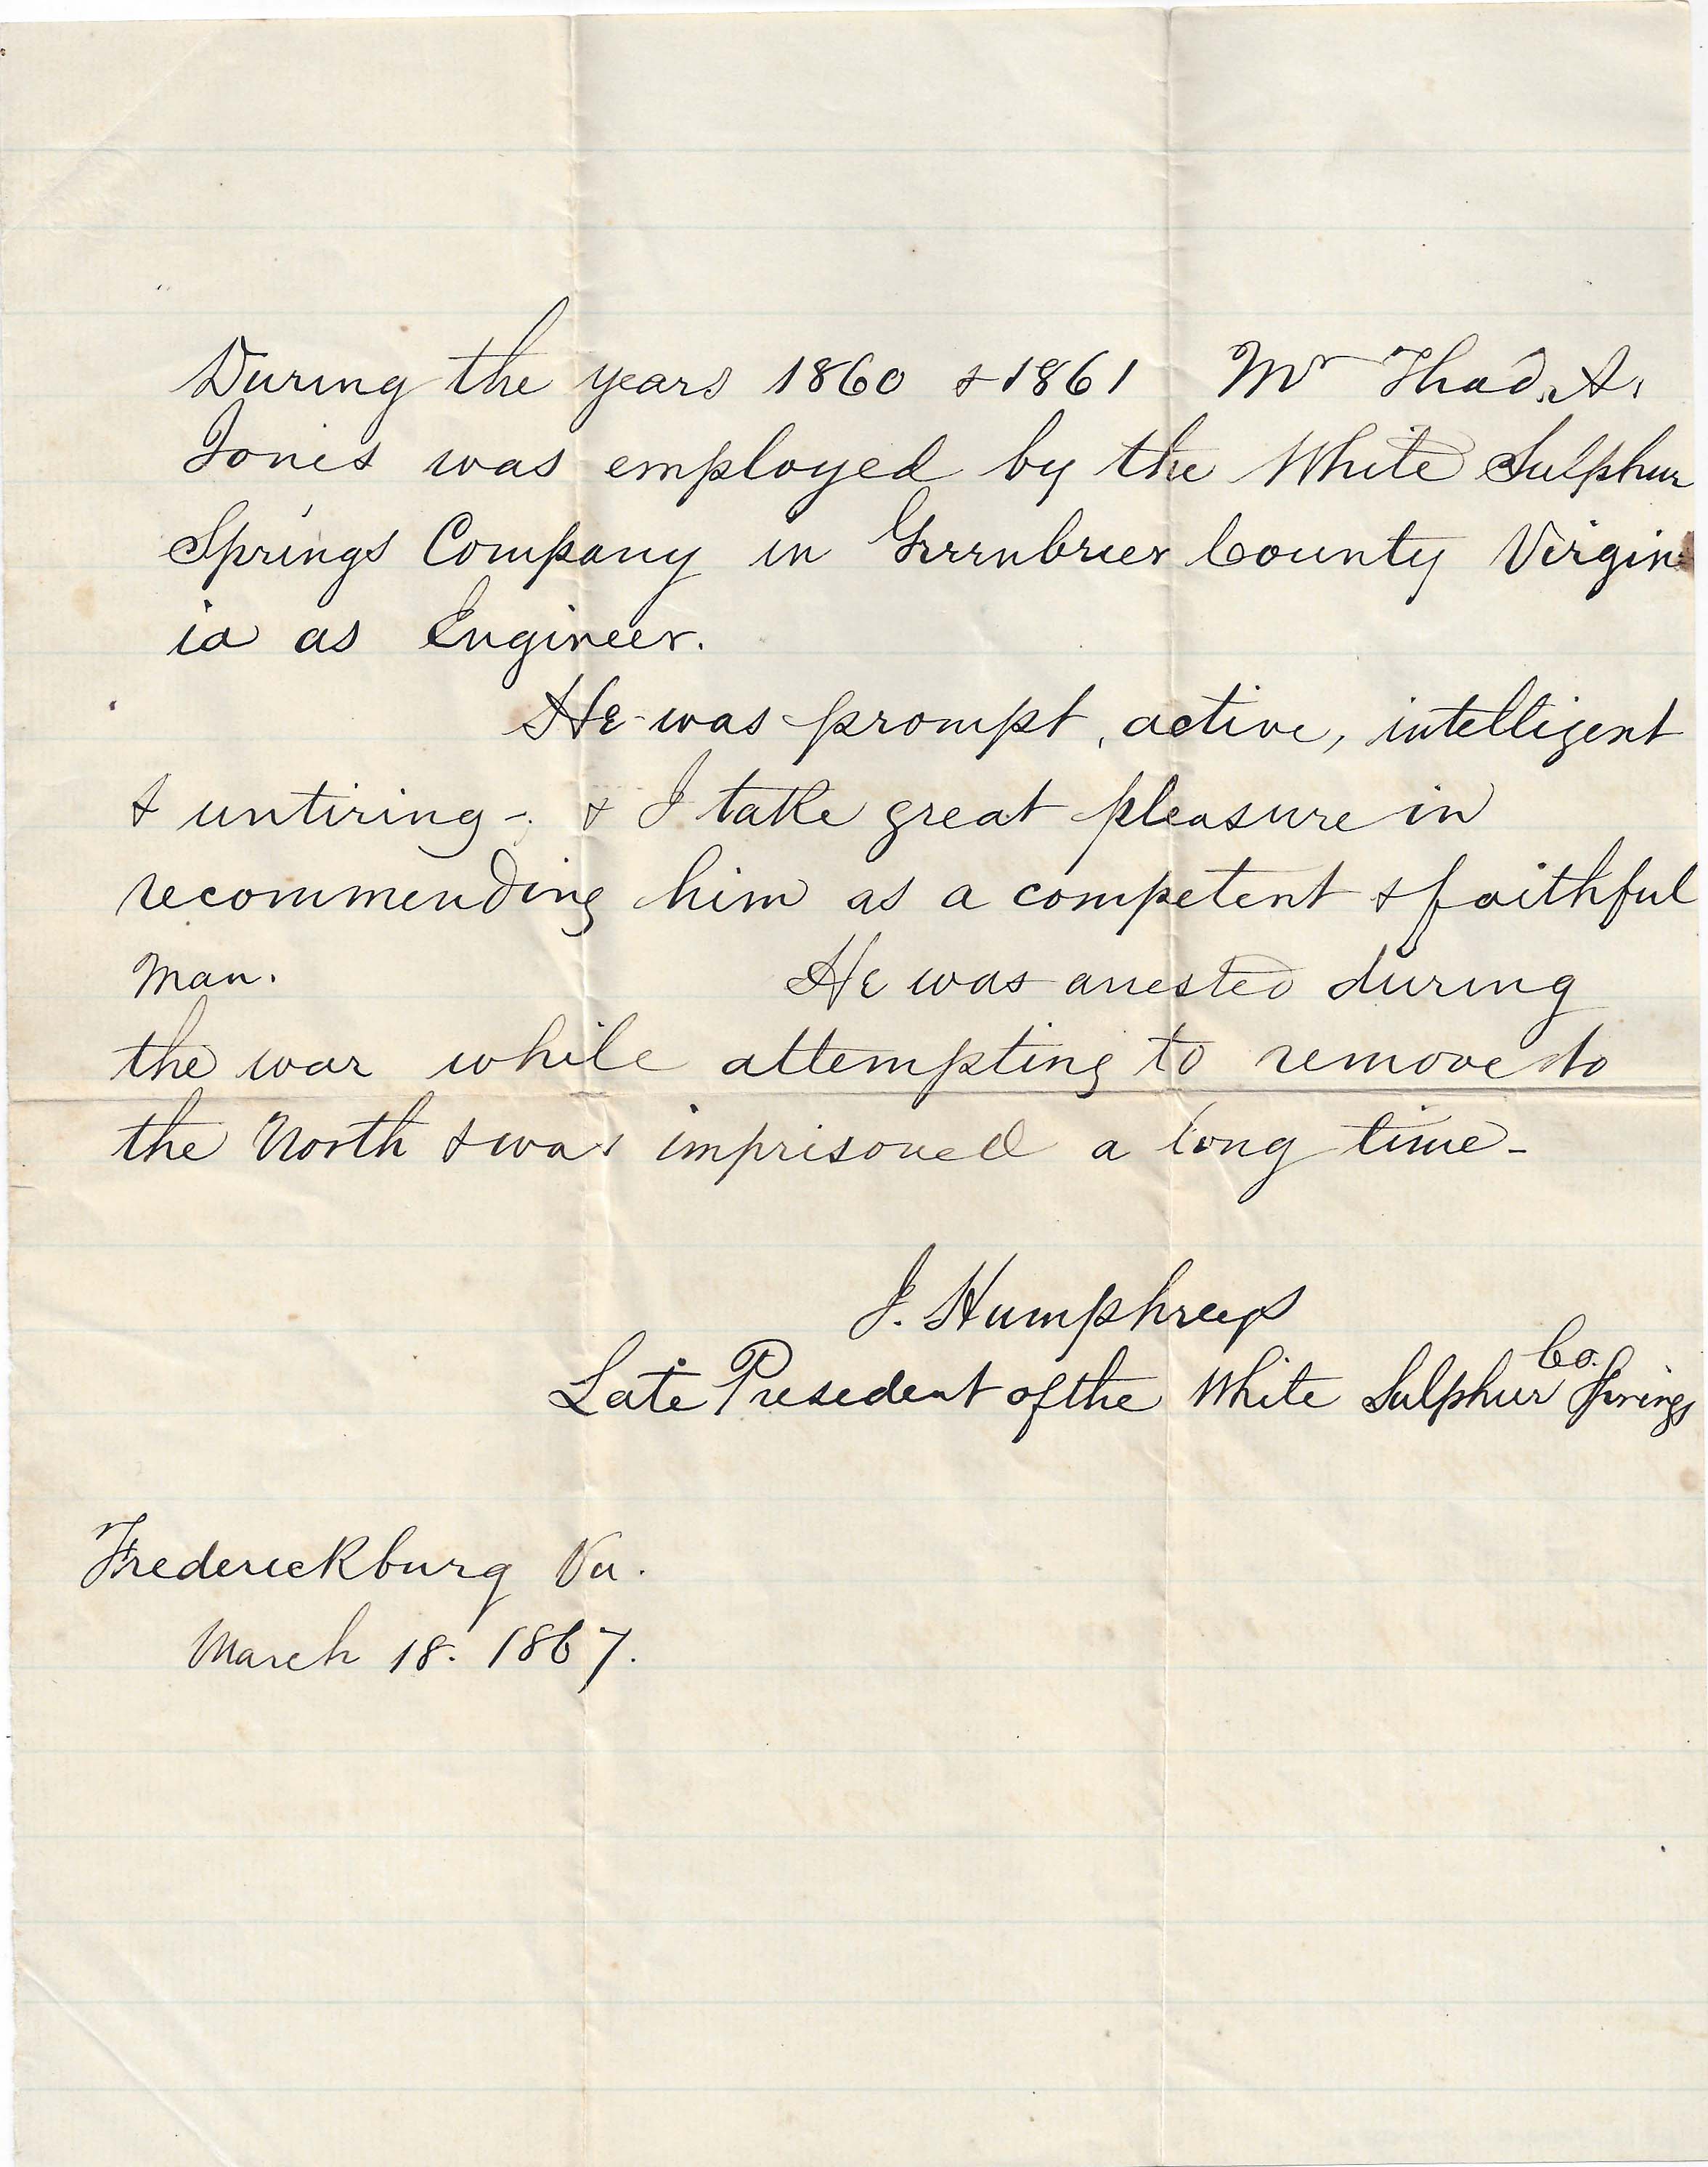 During the years 1860 & 1861 Mr Thad. A.
Jones was employed by the White Sulphur
Springs Company in Greenbrier County Virgin
ia as Engineer.
He was prompt, active, intelligent
& untiring - & I take great pleasure in
recommending him as a competent & faithful
man. He was arrested during
the war while attempting to remove to
the North & was imprisoned a long time -
J. Humphreys
Late President of the White Sulphur Springs Co.
Frederickburg Va.
March 18. 1867.